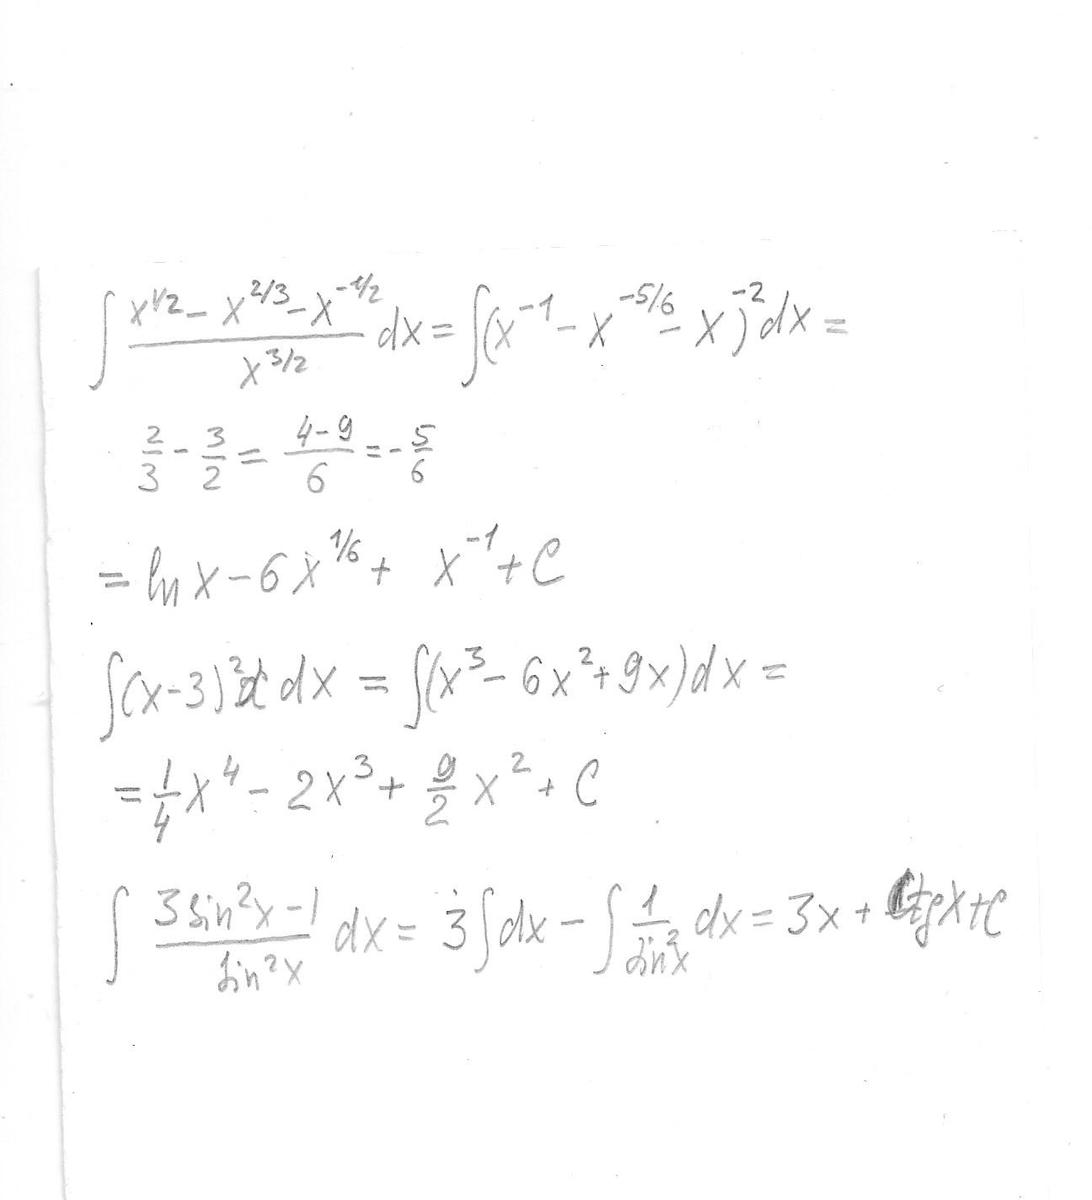 ∫ (x^{1/2} - x^{2/3} - x^{-1/2}) / x^{3/2} dx = ∫(x^{-1} - x^{-5/6} - x)^{-2} dx =
2/3 - 3/2 = (4-9)/6 = -5/6
= ln x - 6x^{1/6} + x^{-1} + C
∫(x-3)^2 x dx = ∫(x^3 - 6x^2 + 9x)dx =
= 1/4 x^4 - 2x^3 + 9/2 x^2 + C
∫ (3 sin^2 x - 1) / sin^2 x dx = 3∫dx - ∫ 1/sin^2 x dx = 3x + ctgx + C